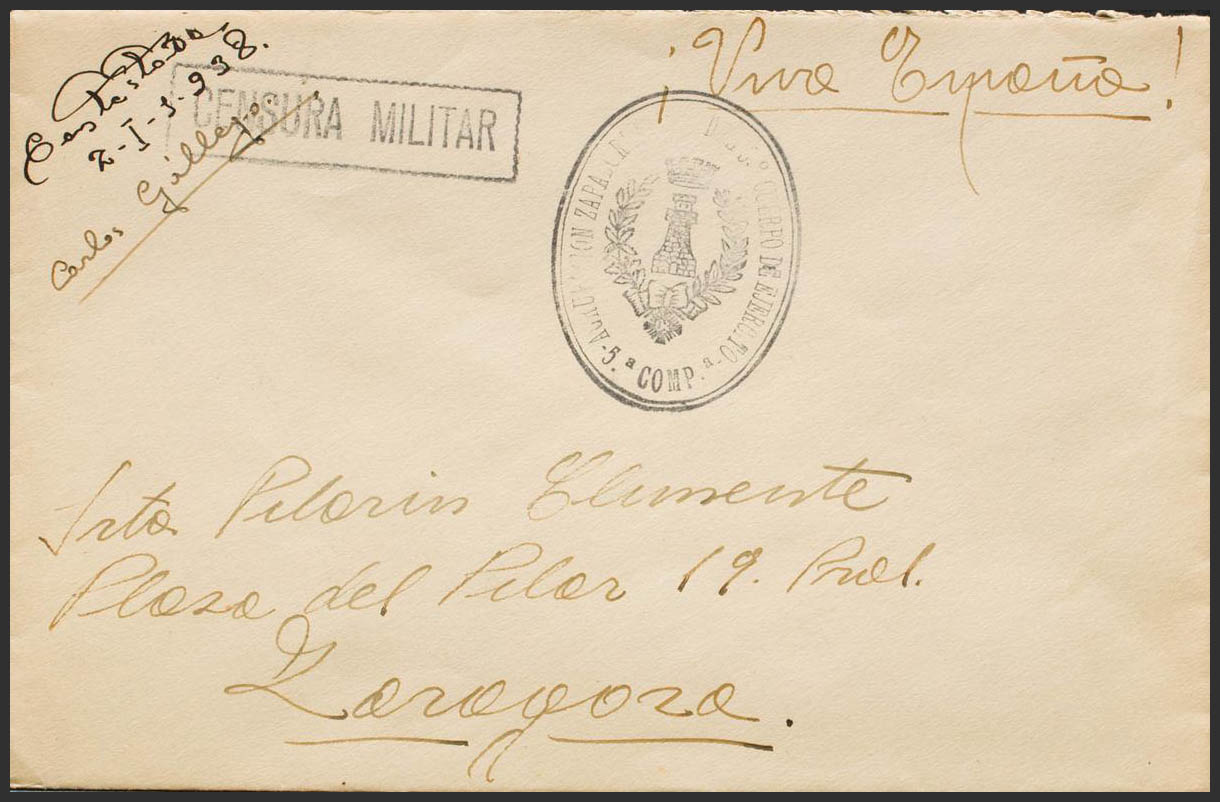 2-I-1-938.
Carlos Gállego
CENSURA MILITAR
¡Viva España!
AGRUPACION ZAPADORES D 5.º CUERPO DE EJERCITO
-5.ª COMP.ª-
Srta Pilarin Clemente
Plaza del Pilar 19. Pral.
Zaragoza.